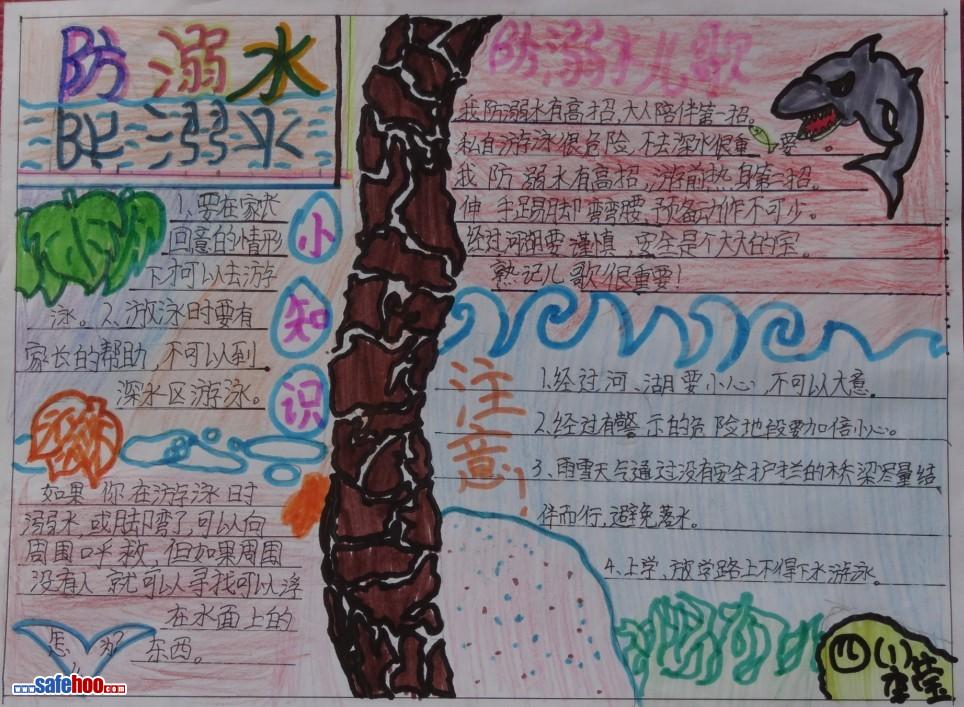 防溺水
防溺水
小知识
1、要在家长
同意的情形
下才可以去游
泳。2、游泳时要有
家长的帮助,不可以到
深水区游泳。
如果你在游泳时
溺水,或脚弯了,可以向
周围呼救,但如果周围
没有人就可以寻找可以浮
在水面上的
东西。
怎 办
防溺水儿歌
我防溺水有高招,大人陪伴第一招。
私自游泳很危险,不去深水很重要。
我防溺水有高招,游前热身第二招。
伸手踢脚弯弯腰,预备动作不可少。
经过河湖要谨慎,安全是个大大的宝。
熟记儿歌很重要!
注意!
1.经过河、湖要小心,不可以大意.
2.经过有警示的危险地段要加倍小心。
3、雨雪天气通过没有安全护栏的桥梁尽量结
伴而行,避免落水。
4.上学、放学路上不得下水游泳.
四(1)
莹
www.safehoo.com